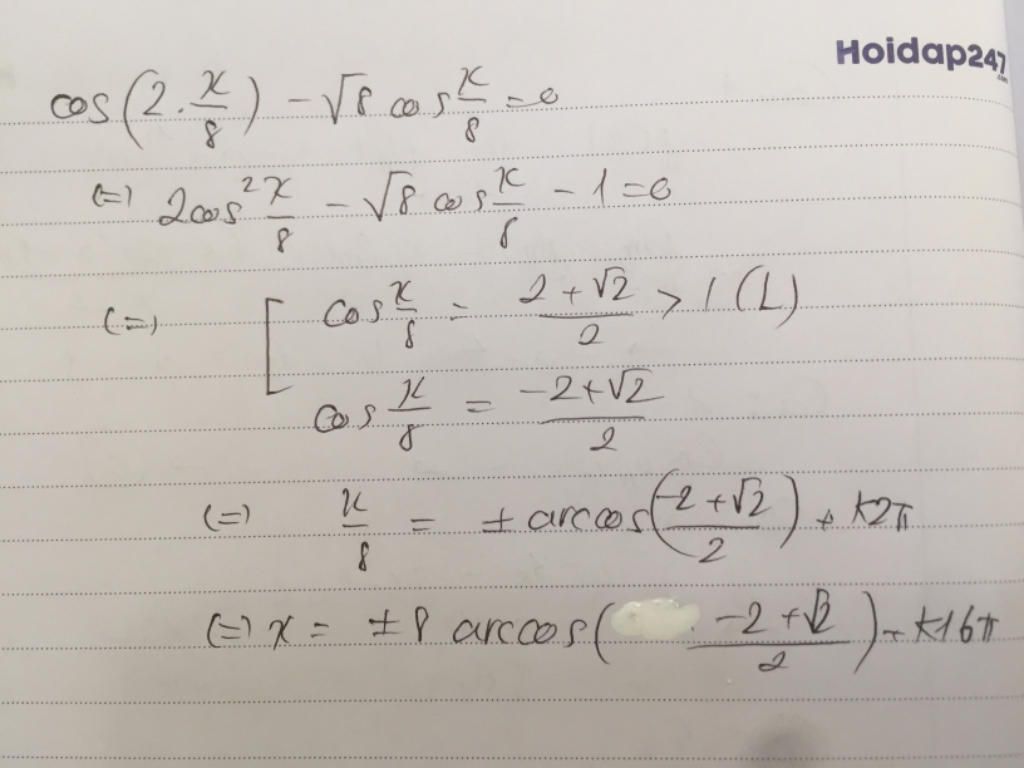 Hoidap247
.com
cos(2.x/8) - √8 cos x/8 = 0
(=) 2cos²x/8 - √8 cos x/8 - 1 = 0
(=) [ cos x/8 = (2+√2)/2 > 1 (L)
cos x/8 = (-2+√2)/2
(=) x/8 = ± arccos((-2+√2)/2) + k2π
(=) x = ±8 arccos((-2+√2)/2) + k16π